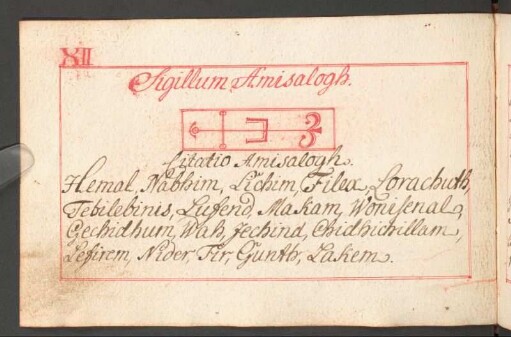 XII
Sigillum Amisalogh.
Citatio Amisalogh.
Hemal, Nabhim, Lichim, Filex, Lorachuth,
Tebilebinis, Lufend, Makam, Wonisenal,
Gechidhum, Wah, Zechind, Chidhichillam,
Lefirem, Nider Fir, Gunth, Lakem.